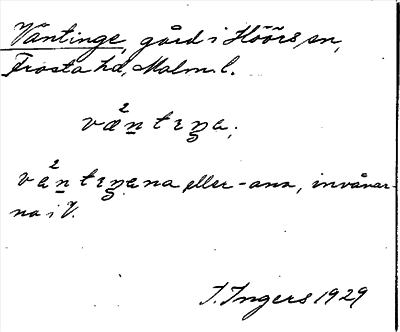 Väntinge, gård i Höörs sn,
Frosta hd, Malm. l.
vä²ntıŋa;
vä²ntıŋana eller -ana, invånar-
na i V.
I. Ingers 1929